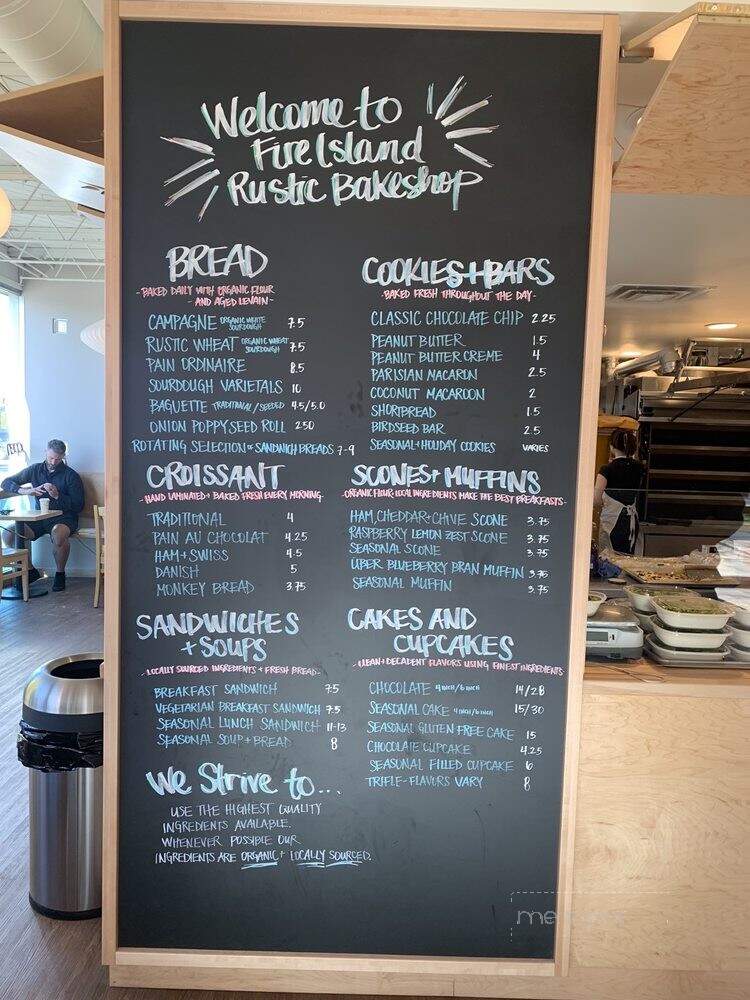 Welcome to
Fire Island
Rustic Bakeshop
BREAD
- BAKED DAILY WITH ORGANIC FLOUR
- AND AGED LEVAIN -
CAMPAGNE ORGANIC WHITE SOURDOUGH 7.5
RUSTIC WHEAT ORGANIC WHEAT SOURDOUGH 7.5
PAIN ORDINAIRE 8.5
SOURDOUGH VARIETALS 10
BAGUETTE TRADITIONAL/SEEDED 4.5/5.0
ONION POPPYSEED ROLL 2.50
ROTATING SELECTION OF SANDWICH BREADS 7-9
CROISSANT
- HAND LAMINATED + BAKED FRESH EVERY MORNING -
TRADITIONAL 4
PAIN AU CHOCOLAT 4.25
HAM + SWISS 4.5
DANISH 5
MONKEY BREAD 3.75
SANDWICHES
+ SOUPS
- LOCALLY SOURCED INGREDIENTS + FRESH BREAD -
BREAKFAST SANDWICH 7.5
VEGETARIAN BREAKFAST SANDWICH 7.5
SEASONAL LUNCH SANDWICH 11-13
SEASONAL SOUP + BREAD 8
We Strive to...
USE THE HIGHEST QUALITY
INGREDIENTS AVAILABLE.
WHENEVER POSSIBLE OUR
INGREDIENTS ARE ORGANIC + LOCALLY SOURCED.
COOKIES + BARS
- BAKED FRESH THROUGHOUT THE DAY -
CLASSIC CHOCOLATE CHIP 2.25
PEANUT BUTTER 1.5
PEANUT BUTTER CREME 4
PARISIAN MACARON 2.5
COCONUT MACAROON 2
SHORTBREAD 1.5
BIRDSEED BAR 2.5
SEASONAL + HOLIDAY COOKIES VARIES
SCONES + MUFFINS
- ORGANIC FLOUR + LOCAL INGREDIENTS MAKE THE BEST BREAKFASTS -
HAM, CHEDDAR + CHIVE SCONE 3.75
RASPBERRY LEMON ZEST SCONE 3.75
SEASONAL SCONE 3.75
UBER BLUEBERRY BRAN MUFFIN 3.75
SEASONAL MUFFIN 3.75
CAKES AND
CUPCAKES
- CLEAN + DECADENT FLAVORS USING FINEST INGREDIENTS
CHOCOLATE 4 INCH/6 INCH 14/28
SEASONAL CAKE 4 INCH/6 INCH 15/30
SEASONAL GLUTEN FREE CAKE 15
CHOCOLATE CUPCAKE 4.25
SEASONAL FILLED CUPCAKE 6
TRIFLE - FLAVORS VARY 8